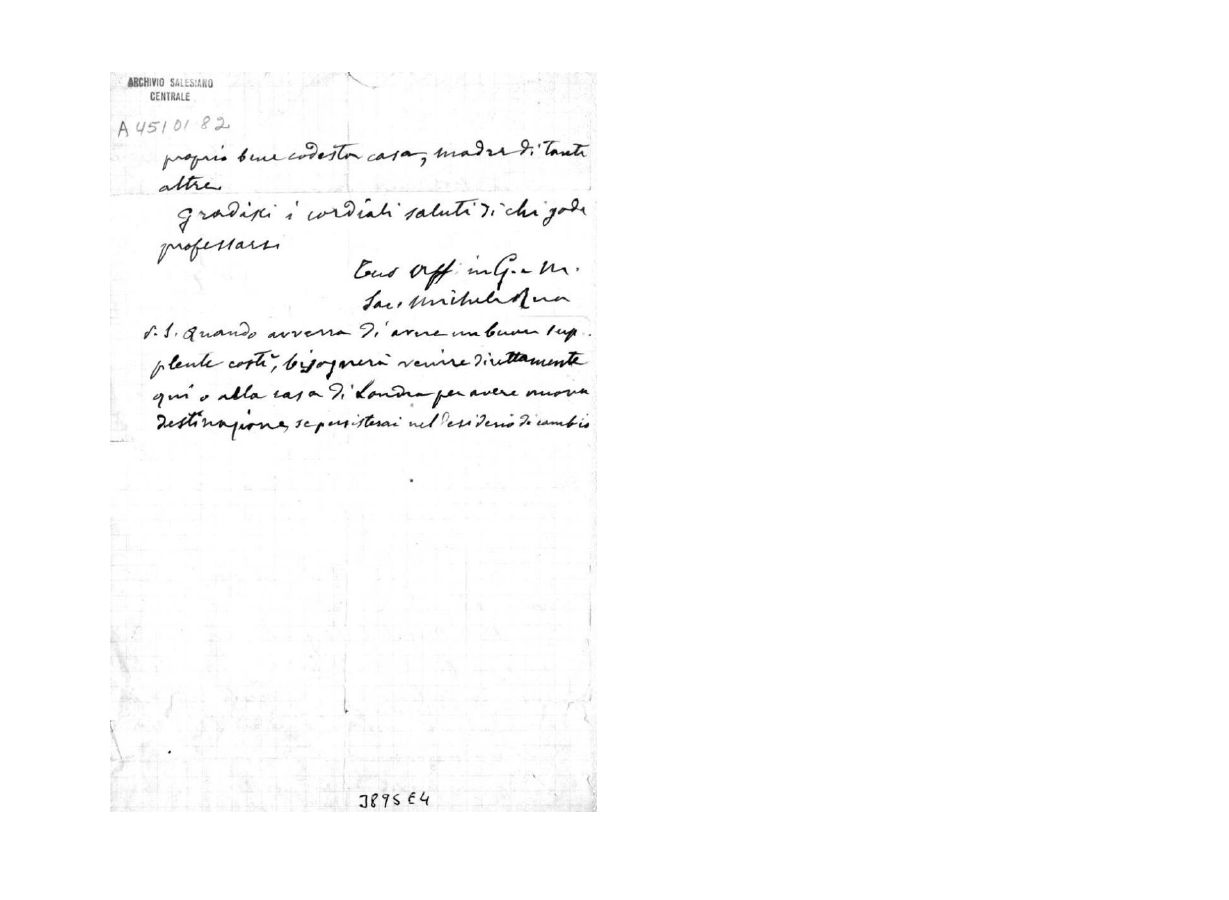 ARCHIVIO SALESIANO
CENTRALE
A 4510182
proprio bene codesta casa, madre di tante
altre.
Gradisci i cordiali saluti di chi gode
professarsi
Tuo aff. in G. e M.
Sac. Michele Rua
P. S. Quando avverrà di avere un buon sup-
plente costì, bisognerà venire direttamente
qui o alla casa di Londra per avere nuova
destinazione, se persisterai nel desiderio di cambio
3895 E4